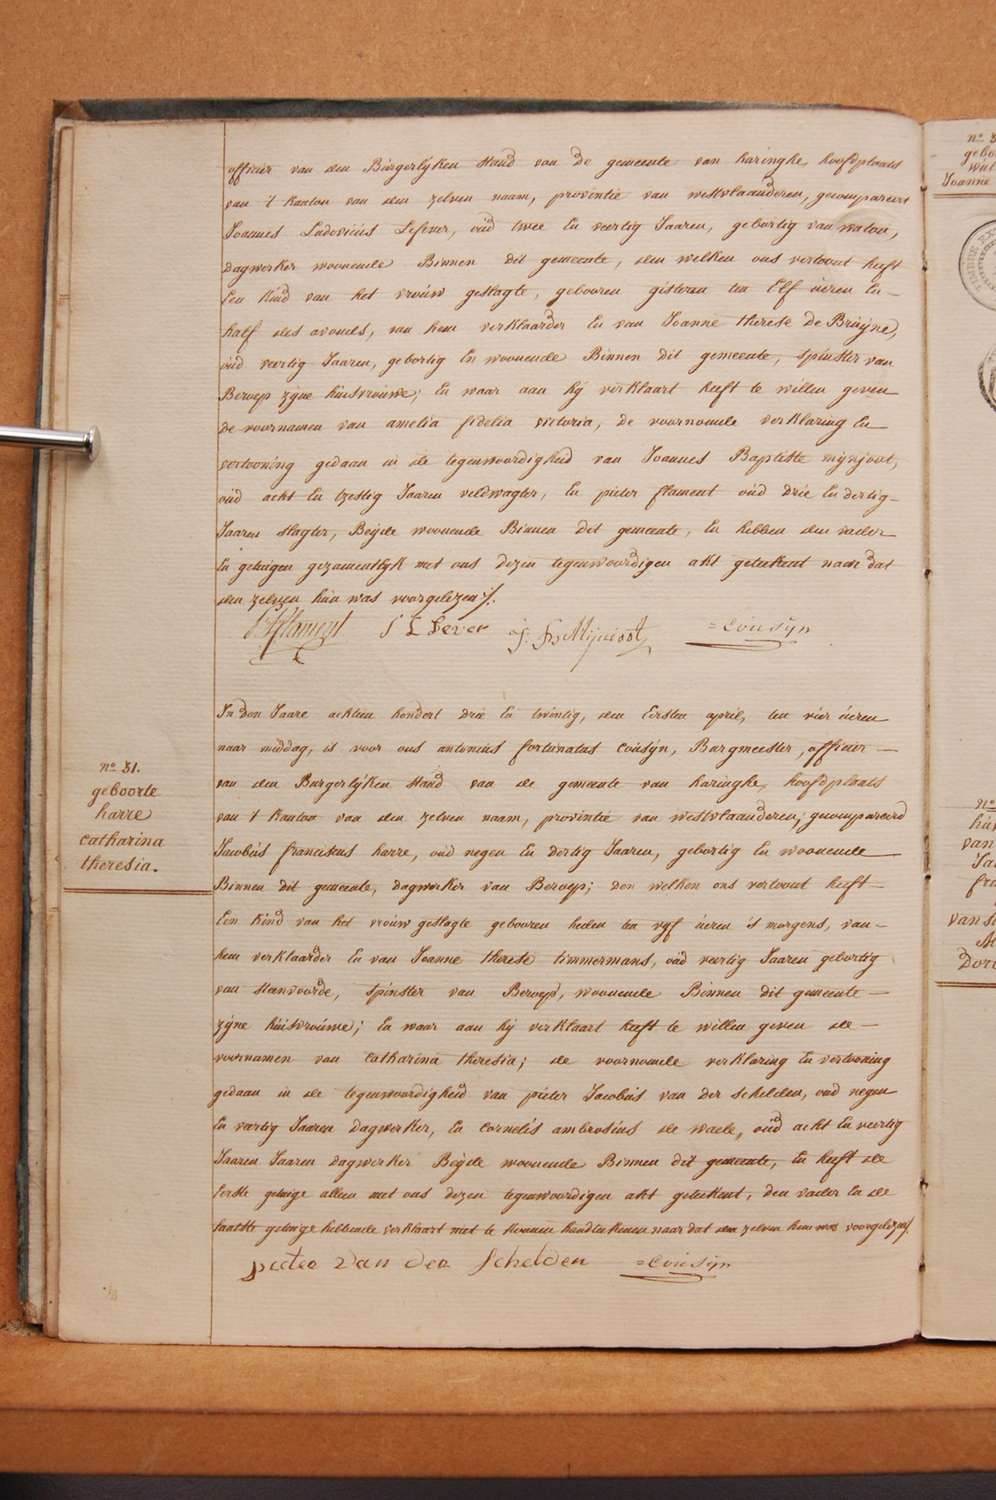 officier van den Bürgerlÿken stand van de gemeente van haringhe, hoofdplaats
van 't kanton van den zelven naam, provintie van westvlaanderen, gecompareert
Joannes Ludovicüs Lefever, oüd twee En veertig Jaaren, gebortig van watou,
dagwerker woonende Binnen dit gemeente, den welken ons vertoont heeft
Een kind van het vroüw geslagte, gebooren gisteren ten Elf üeren En
half des avonds, van hem verklaarder En van Joanne therese de Brüÿne,
oüd veertig Jaaren, gebortig En woonende Binnen dit gemeente, spinster van
Beroep zÿne hüisvroüwe; En waar aan hÿ verklaart heeft te willen geven
de voornamen van amelia fidelia victoria, de voornomde verklaring En
vertooning gedaan in de tegenwoordigheid van Joannes Baptiste mÿnjoot,
oüd acht En tzestig Jaaren veldwagter, En pieter flament oüd drie En dertig
Jaaren slagter, Beÿde woonende Binnen dit gemeente, En hebben den vader
En getuigen gezamentlÿk met ons dezen tegenwoordigen akt geteekent naar dat
den zelven hün was voorgelezen ./.
Pflament J L Fever J. B Mijnioot = Cousÿn
In den Jaare achtien hondert drie En twintig, den Eersten april, ten vier üeren
naar middag, is voor ons antonius fortunatus Cousÿn, Burgmeester, officier
van den Burgerlÿken stand van de gemeente van haringhe, hoofdplaats
van 't kanton van den zelven naam, provintie van westvlaanderen; gecompareerd
Jacobüs franciscus harre, oüd negen En dertig Jaaren, gebortig En woonende
Binnen dit gemeente, dagwerker van Beroep; den welken ons vertoont heeft
Een kind van het vroüw geslagte gebooren heden ten vÿf üeren 's morgens, van
hem verklaarder En van Joanne therese timmermans, oüd veertig Jaaren gebortig
van steenvoorde, spinster van Beroep, woonende Binnen dit gemeente
zÿne hüisvroüwe; En waar aan hÿ verklaart heeft te willen geven de
voornamen van Catharina theresia; de voornomde verklaring En vertooning
gedaan in de tegenwoordigheid van pieter Jacobüs van der schelden, oud negen
En veertig Jaaren dagwerker, En Cornelis ambrosiüs de waele, oüd acht En veertig
Jaaren Jaaren dagwerker Beÿde woonende Binnen dit gemeente, En heeft de
Eerste getuige alleen met ons dezen tegenwoordigen akt geteekent, den vader En de
laatste getuige hebbende verklaart niet te konnen handteekenen naar dat den zelven hem was voorgelezen/.
pieter van der schelden = Cousÿn
no 31.
geboorte
harre
catharina
theresia.